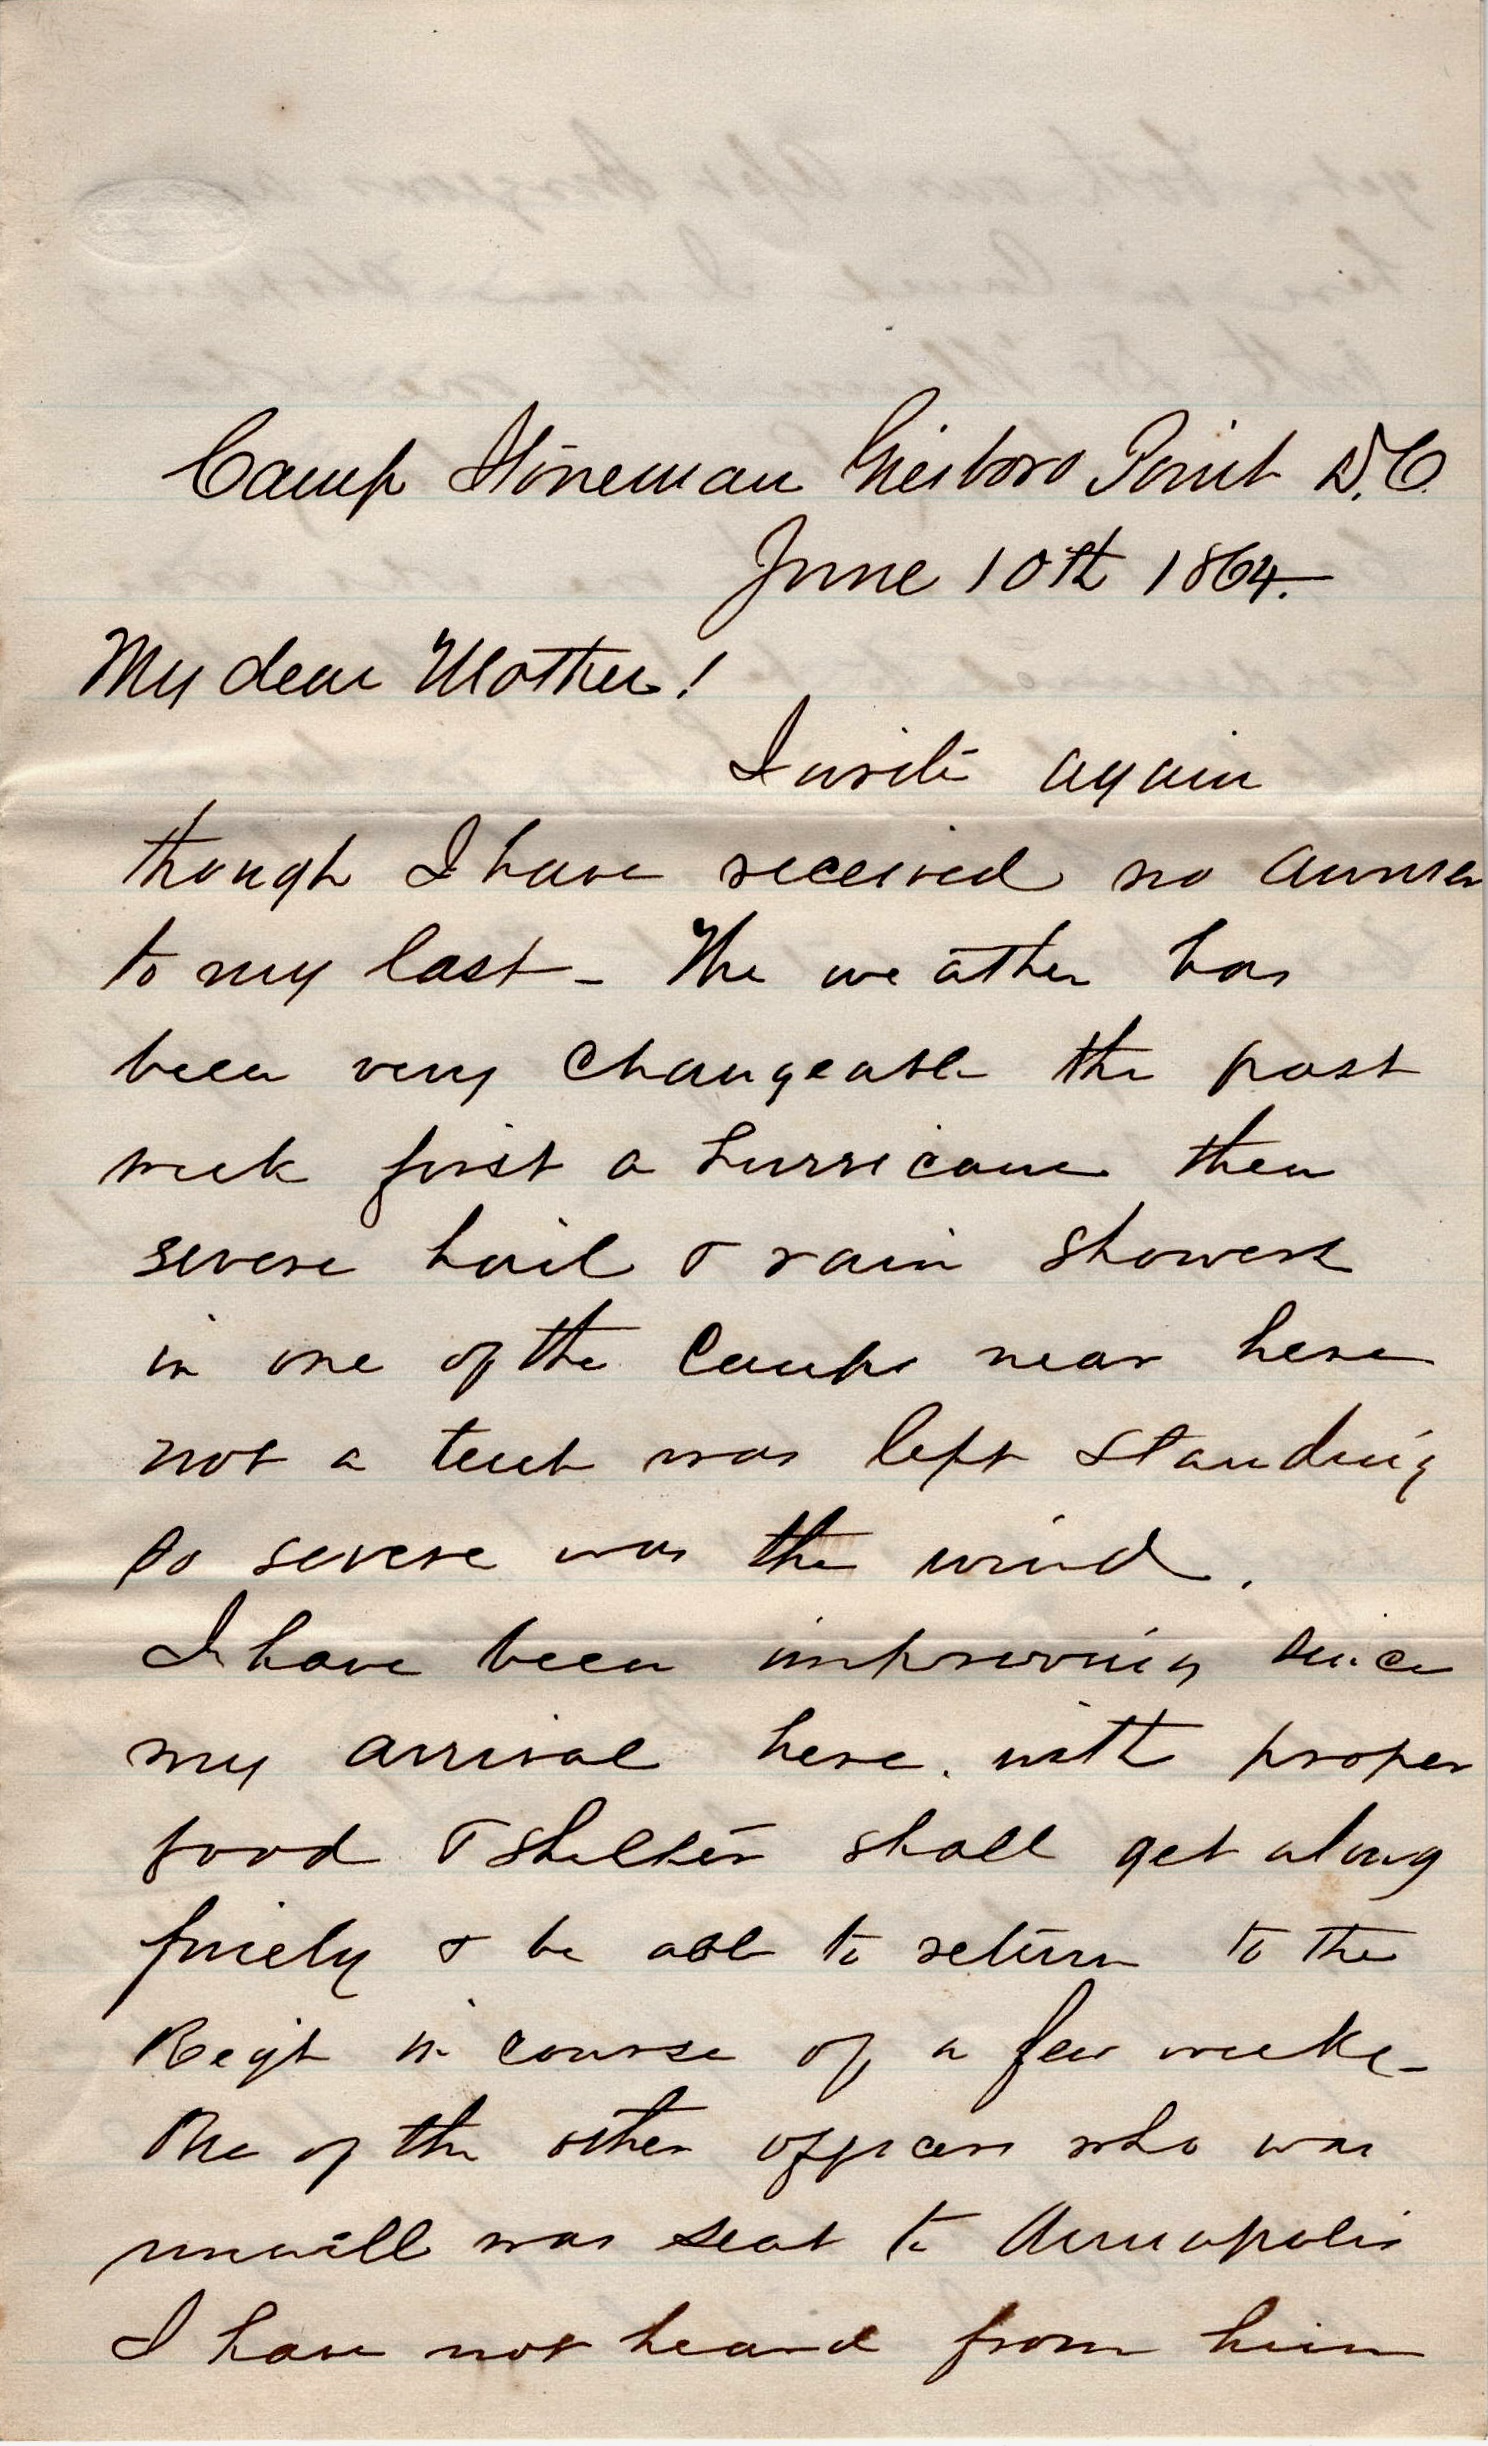 Camp Stoneman Giesboro Point D.C.
June 10th 1864.
My dear Mother!
I write again
though I have received no answer
to my last - The weather has
been very changeable the past
week first a hurricane then
severe hail & rain showers
in one of the Camps near here
not a tent was left standing
so severe was the wind.
I have been improving since
my arrival here. with proper
food & shelter shall get along
finely & be able to return to the
Regt in course of a few weeks -
One of the other officers who was
unwell was sent to Annapolis
I have not heard from him